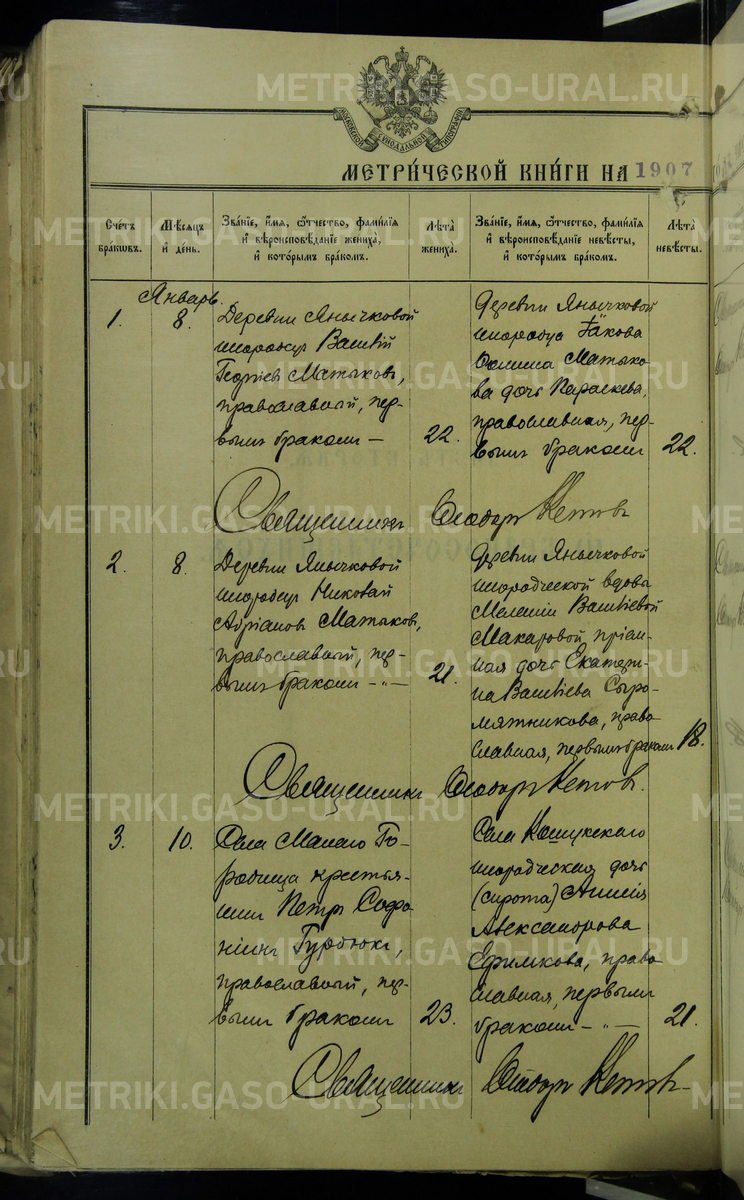 МОСКОВСКОЙ СѴНОДАЛЬНОЙ ТИПОГРАФІИ
МЕТРИ́ЧЕСКОЙ КНИ́ГИ НА 1907
Счетъ бракѡвъ.
Мѣсѧцъ и҆ де́нь.
Зва́нїе, и҆́мѧ, ѻ҆́тчество, фами́лїѧ и҆ вѣроисповѣ́данїе жениха̀, и҆ кото́рымъ бра́комъ.
Лѣ́та жениха̀.
Зва́нїе, и҆́мѧ, ѻ҆́тчество, фами́лїѧ и҆ вѣроисповѣ́данїе невѣ́сты, и҆ кото́рымъ бра́комъ.
Лѣ́та невѣ́сты.
Январь.
1.
8.
Деревни Янычковой
инородецъ Василій
Георгіевъ Матыковъ,
православный, пер-
вымъ бракомъ –
22.
Деревни Янычковой
инородца Іакова
Матыко-
ва дочь Параскева,
православная, пер-
вымъ бракомъ
22.
Священникъ Ѳеодоръ Кетовъ
2.
8.
Деревни Янычковой
инородецъ Николай
Адріановъ Матыковъ,
православный, пер-
вымъ бракомъ –"–
21.
Деревни Янычковой
инородческой вдовы
Меланіи Васильевой
Макаровой пріем-
ная дочь Екатери-
на Васильева Сыро-
мятникова, право
славная, первымъ бракомъ
18.
Священникъ Ѳеодоръ Кетовъ.
3.
10.
Села Малаго Го-
родища крестья-
нинъ Петръ Софо-
ніинъ Гурбюкъ,
православный, пер-
вымъ бракомъ
23.
Села Кошукскаго
инородческая дочь
(сирота) Анисія
Александрова
Ефимкова, право
славная, первымъ
бракомъ –"–
21.
Священникъ Ѳеодоръ Кетовъ
METRIKI.GASO-URAL.RU